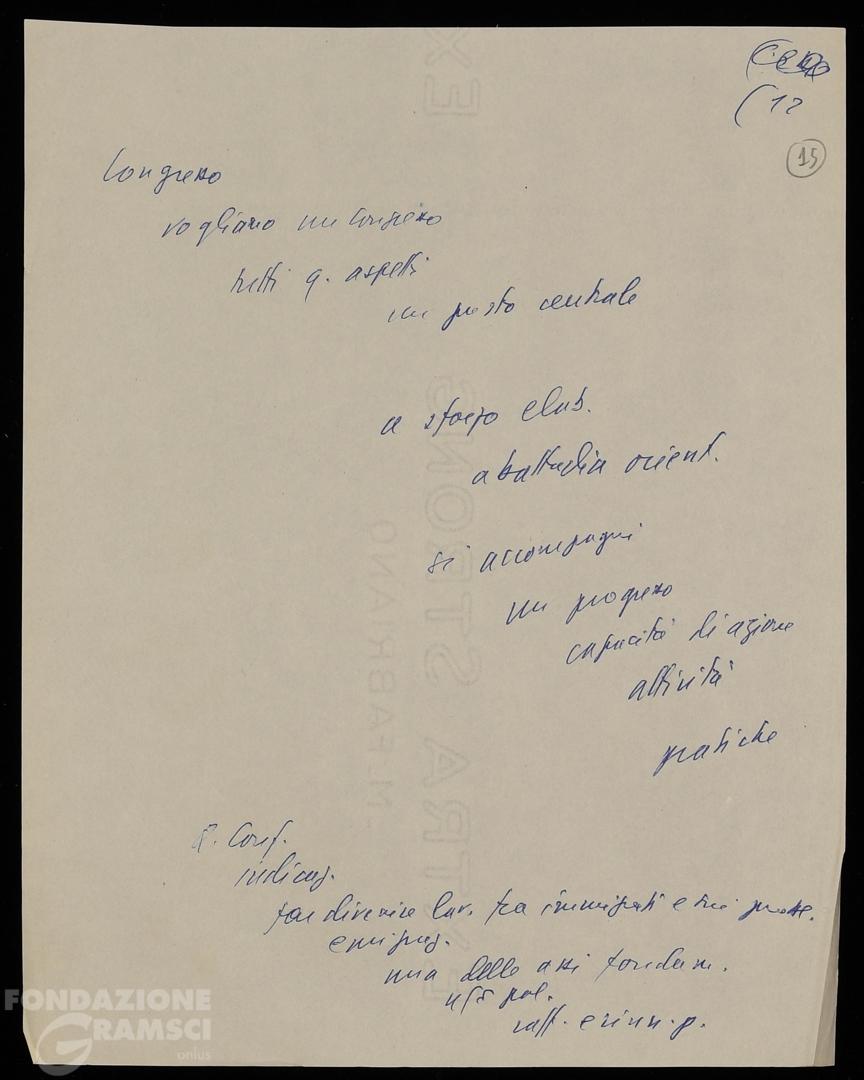 (12
15
Congresso
vogliamo un Congresso
tutti q. aspetti
un posto centrale
a sforzo elab.
a battaglia orient.
si accompagni
un progresso
capacità di azione
attività
pratiche
Conf.
indicaz.
far divenire lav. tra immigrati e
emigraz.
una delle assi fondam.
pol.
raff. e rinn. p.
EXTRA STRONG
M. FABRIANO
FONDAZIONE
GRAMSCI
onlus